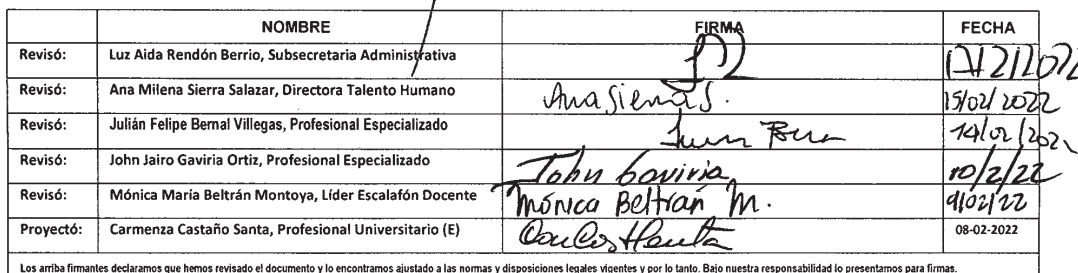 NOMBRE FIRMA FECHA
Revisó: Luz Aida Rendón Berrio, Subsecretaria Administrativa 17/2/2022
Revisó: Ana Milena Sierra Salazar, Directora Talento Humano Ana Sierra S. 15/02/2022
Revisó: Julián Felipe Bernal Villegas, Profesional Especializado 14/02/202
Revisó: John Jairo Gaviria Ortiz, Profesional Especializado John Gaviria 10/2/22
Revisó: Mónica María Beltrán Montoya, Líder Escalafón Docente Mónica Beltrán M. 9/02/22
Proyectó: Carmenza Castaño Santa, Profesional Universitario (E) 08-02-2022
Los arriba firmantes declaramos que hemos revisado el documento y lo encontramos ajustado a las normas y disposiciones legales vigentes y por lo tanto. Bajo nuestra responsabilidad lo presentamos para firmas.